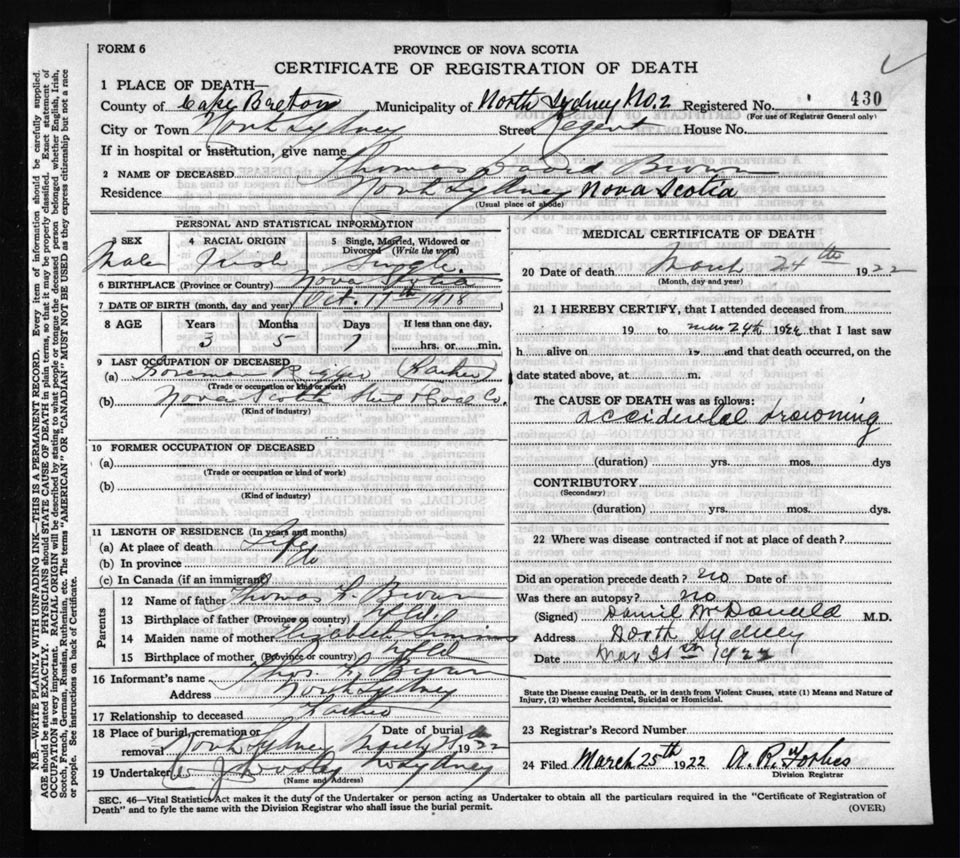 FORM 6
PROVINCE OF NOVA SCOTIA
CERTIFICATE OF REGISTRATION OF DEATH
1 PLACE OF DEATH—
County of Cape Breton Municipality of North Sydney No. 2 Registered No. 430
(For use of Registrar General only)
City or Town North Sydney Street Regent House No.
If in hospital or institution, give name
2 NAME OF DECEASED Thomas David Brown
Residence North Sydney Nova Scotia
(Usual place of abode)
PERSONAL AND STATISTICAL INFORMATION
3 SEX 4 RACIAL ORIGIN 5 Single, Married, Widowed or Divorced (Write the word)
Male Irish Single.
6 BIRTHPLACE (Province or Country) Nova Scotia
7 DATE OF BIRTH (month, day and year) Oct. 17th 1918
8 AGE Years Months Days If less than one day.
3 5 7 hrs. or min.
9 LAST OCCUPATION OF DECEASED
(a) Foreman Rigger (Father)
(Trade or occupation or kind of work)
(b) Nova Scotia Steel & Coal Co.
(Kind of industry)
10 FORMER OCCUPATION OF DECEASED
(a)
(Trade or occupation or kind of work)
(b)
(Kind of industry)
11 LENGTH OF RESIDENCE (In years and months)
(a) At place of death Life
(b) In province do
(c) In Canada (if an immigrant)
Parents
12 Name of father Thomas F. Brown
13 Birthplace of father (Province or country) Nfld
14 Maiden name of mother Elizabeth Simms
15 Birthplace of mother (Province or country) Nfld
16 Informant's name Thos. F. Brown
Address North Sydney
17 Relationship to deceased Father
18 Place of burial, cremation or removal North Sydney Date of burial March 1922
19 Undertaker J Dooley N Sydney
(Name and Address)
MEDICAL CERTIFICATE OF DEATH
20 Date of death March 24th 1922
(Month, day and year)
21 I HEREBY CERTIFY, that I attended deceased from
19 to Mar 24th 1922 that I last saw
h alive on 19 and that death occurred, on the
date stated above, at m.
The CAUSE OF DEATH was as follows:
accidental drowning
(duration) yrs. mos. dys
CONTRIBUTORY
(Secondary)
(duration) yrs. mos. dys
22 Where was disease contracted if not at place of death?
Did an operation precede death? no Date of
Was there an autopsy? no
(Signed) Daniel McDonald M.D.
Address North Sydney
Date Mar 31st 1922
State the Disease causing Death, or in death from Violent Causes, state (1) Means and Nature of
Injury, (2) whether Accidental, Suicidal or Homicidal.
23 Registrar's Record Number
24 Filed March 25th 1922 A. R. Forbes
Division Registrar
SEC. 46—Vital Statistics Act makes it the duty of the Undertaker or person acting as Undertaker to obtain all the particulars required in the "Certificate of Registration of
Death" and to fyle the same with the Division Registrar who shall issue the burial permit.
(OVER)
N.B.—WRITE PLAINLY WITH UNFADING INK—THIS IS A PERMANENT RECORD. Every item of information should be carefully supplied.
AGE should be stated EXACTLY. PHYSICIANS should STATE CAUSE OF DEATH in plain terms, so that it may be properly classified. Exact statement of
OCCUPATION is very important. RACIAL ORIGIN will be described by stating to what people or tongue the deceased person belonged whether English, Irish,
Scotch, French, German, Russian, Ruthenian, etc. The terms "AMERICAN" OR "CANADIAN" MUST NOT BE USED as they express citizenship but not a race
or people. See instructions on back of Certificate.